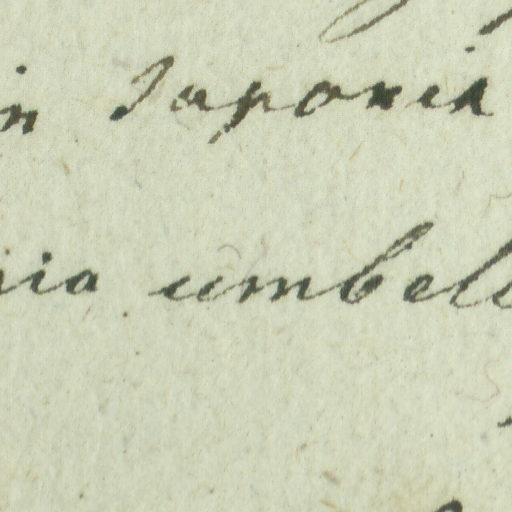 in Japonia
nia umbell